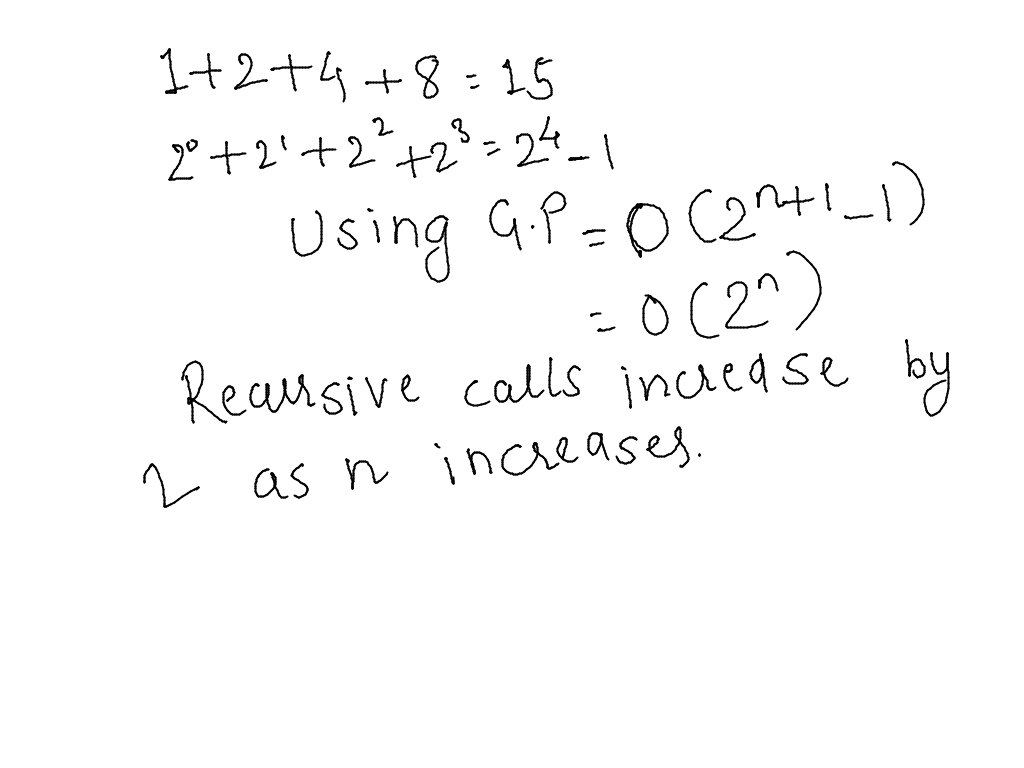 1+2+4+8=15
2⁰+2¹+2²+2³=2⁴-1
Using G.P=O(2ⁿ⁺¹-1)
=O(2ⁿ)
Recursive calls increase by
2 as n increases.